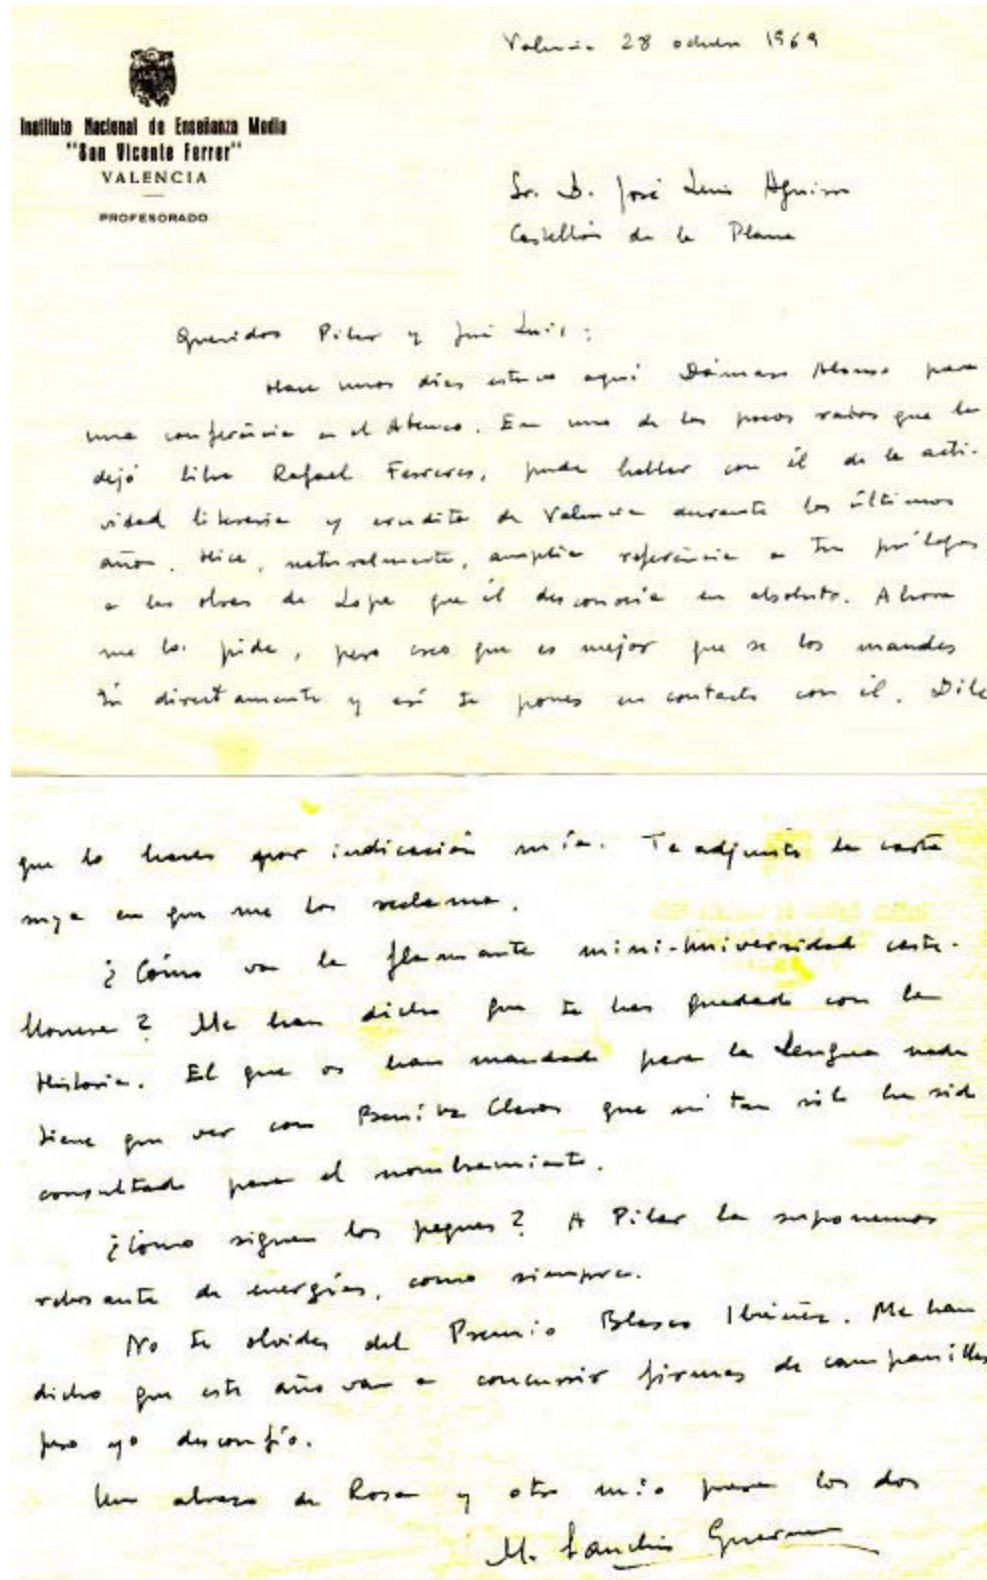 Valencia 28 octubre 1969
Instituto Nacional de Enseñanza Media
"San Vicente Ferrer"
VALENCIA
PROFESORADO
Sr. D. José Luis Aguirre
Castellón de la Plana
Queridos Pilar y José Luis:
Hace unos días estuvo aquí Dámaso Alonso para
una conferència en el Ateneo. En uno de los pocos ratos que le
dejó libre Rafael Ferreres, pude hablar con él de la acti-
vidad literaria y erudita de Valencia durante los últimos
años. Hice, naturalmente, amplia referència a tus prólogos
a las obras de Lope que él desconocía en absoluto. Ahora
me los pide, pero creo que es mejor que se los mandes
tú directamente y así te pones en contacto con él. Dile
que lo haces por indicación mía. Te adjunto la carta
suya en que me los reclama.
¿Cómo va la flamante mini-universidad caste-
llonense? Me han dicho que te has quedado con la
Historia. El que os han mandado para la Lengua nada
tiene que ver con Claros que ni tan sólo ha sido
consultado para el nombramiento.
¿Cómo siguen los peques? A Pilar la suponemos
rebosante de energías, como siempre.
No te olvides del Premio Blasco Ibáñez. Me han
dicho que este año van a concurrir firmas de campanillas
pero yo desconfío.
Un abrazo de Rosa y otro mío para los dos
M. Sanchis Guarner